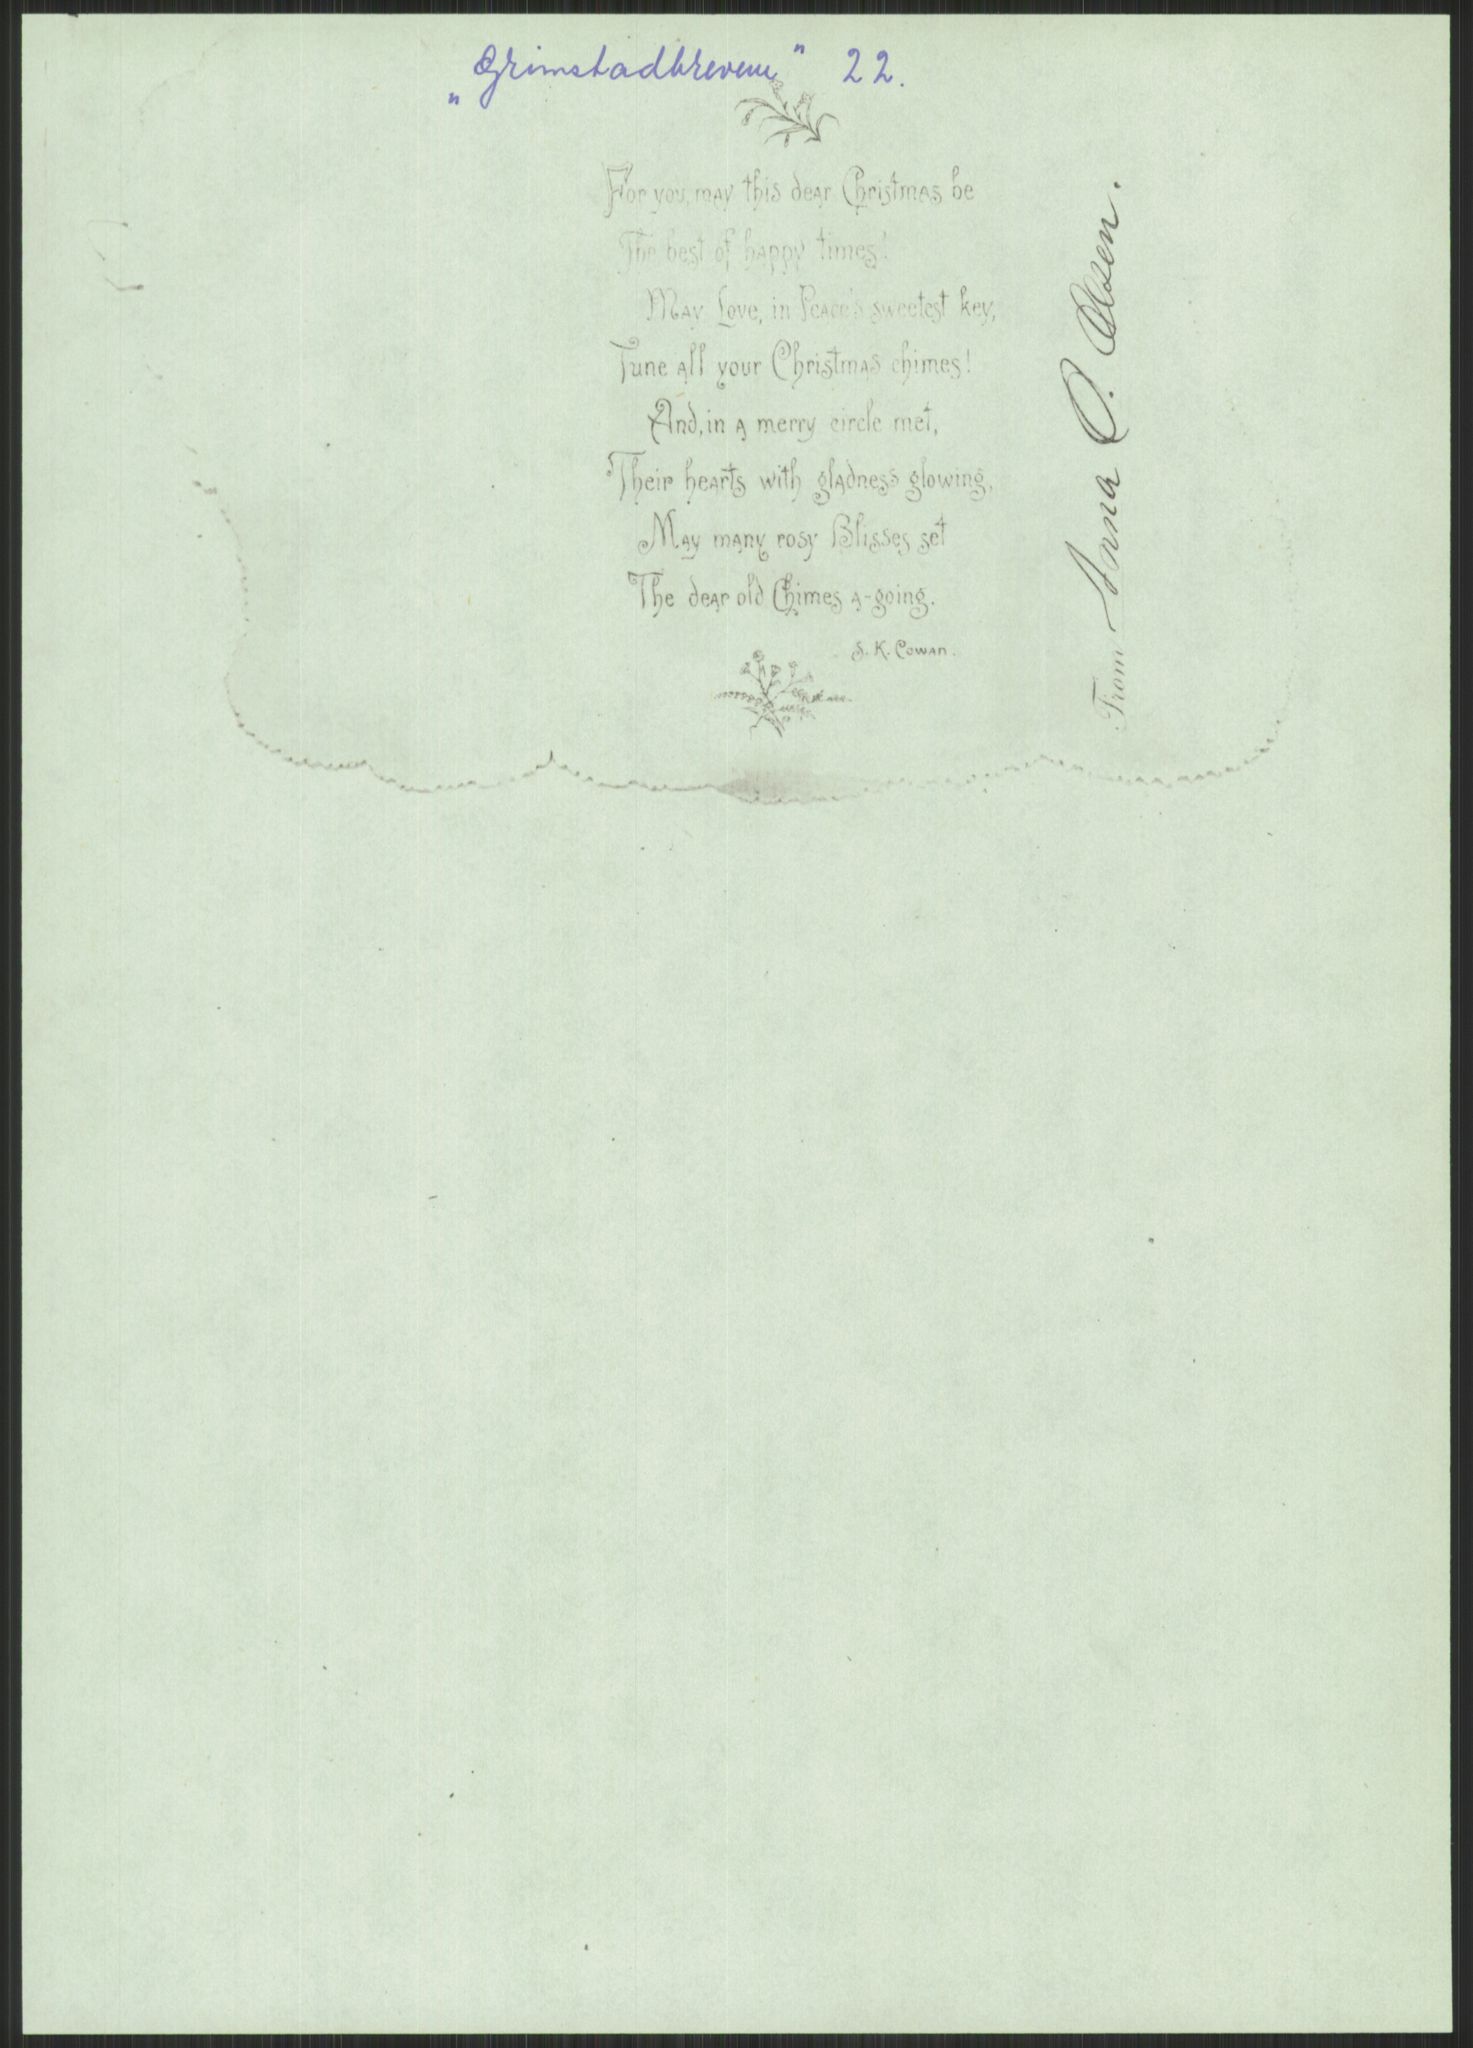 „Grimstadbrevene" 22.
For you, may this dear Christmas be
The best of happy times!
May Love, in Peace's sweetest key,
Tune all your Christmas chimes!
And, in a merry circle met,
Their hearts with gladness glowing,
May many rosy Blisses set
The dear old Chimes a-going.
S. K. Cowan.
From Anna O. Olsen.